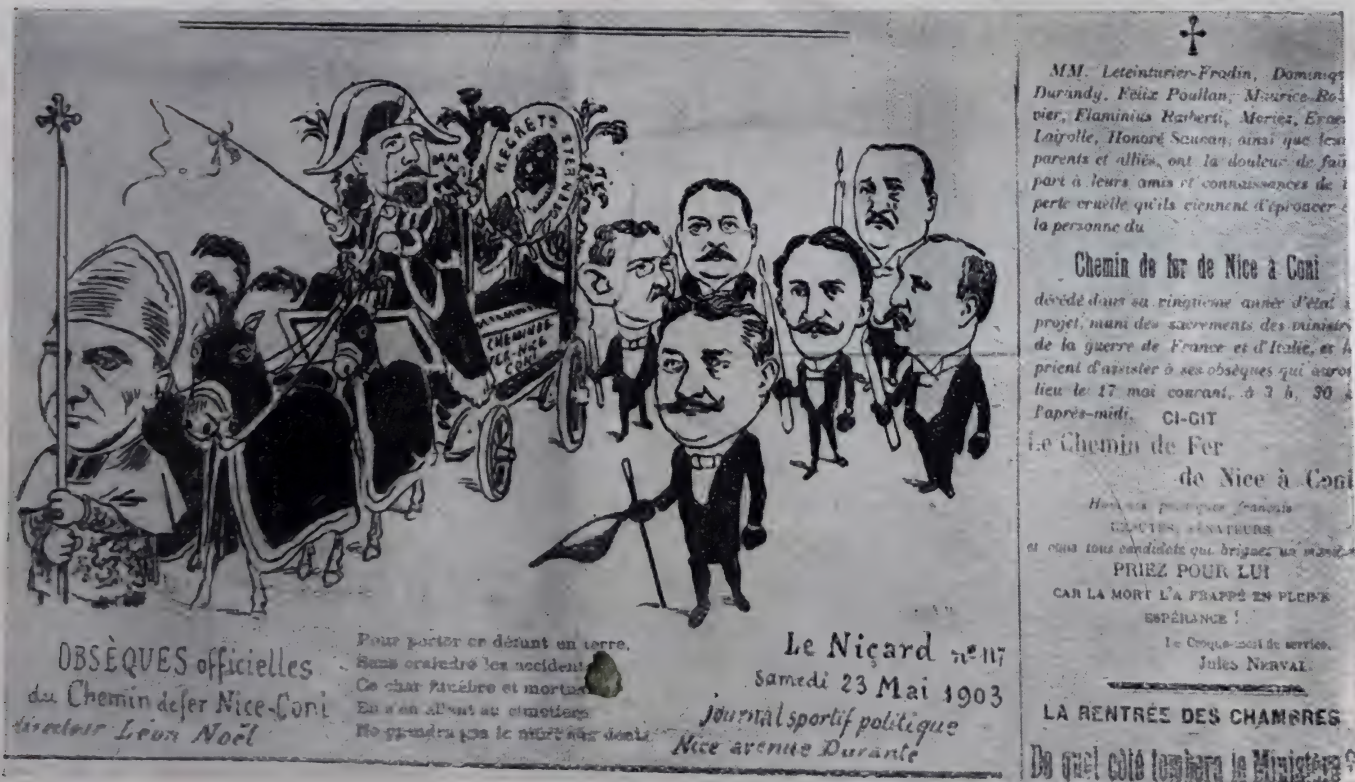 REGRETS ETERNELS
CHEMIN DE
FER NICE
CONI
OBSÈQUES officielles
du Chemin de fer Nice-Coni
directeur Léon Noël
Pour porter ce défunt en terre,
Sans craindre les accidents
Ce char funèbre et
En s'en allant au cimetière
Ne prendra pas le mort aux dents.
Le Niçard nº 117
Samedi 23 Mai 1903
journal sportif politique
Nice avenue Durante
MM. Leteinturier-Fradin, Dominiq
Durandy, Félix Poullan, Maurice Rou
vier, Flaminius Raiberti, Moriez, Ernes
Lairolle, Honoré Sauvan, ainsi que leur
parents et alliés, ont la douleur de fair
part à leurs amis et connaissances de l
perte cruelle qu'ils viennent d'éprouver e
la personne du
Chemin de fer de Nice à Coni
décédé dans sa vingtième année d'état
projet, muni des sacrements des ministr
de la guerre de France et d'Italie, et
prient d'assister à ses obsèques qui auron
lieu le 17 mai courant, à 3 h. 30
l'après-midi.
CI-GIT
Le Chemin de Fer
de Nice à Coni
français
DÉPUTÉS, SÉNATEURS
et vous tous candidats qui briguez un mandat
PRIEZ POUR LUI
CAR LA MORT L'A FRAPPÉ EN PLEINE
ESPÉRANCE !
Le Croque-mort de service,
Jules NERVAL.
LA RENTRÉE DES CHAMBRES
De quel côté tombera le Ministère ?